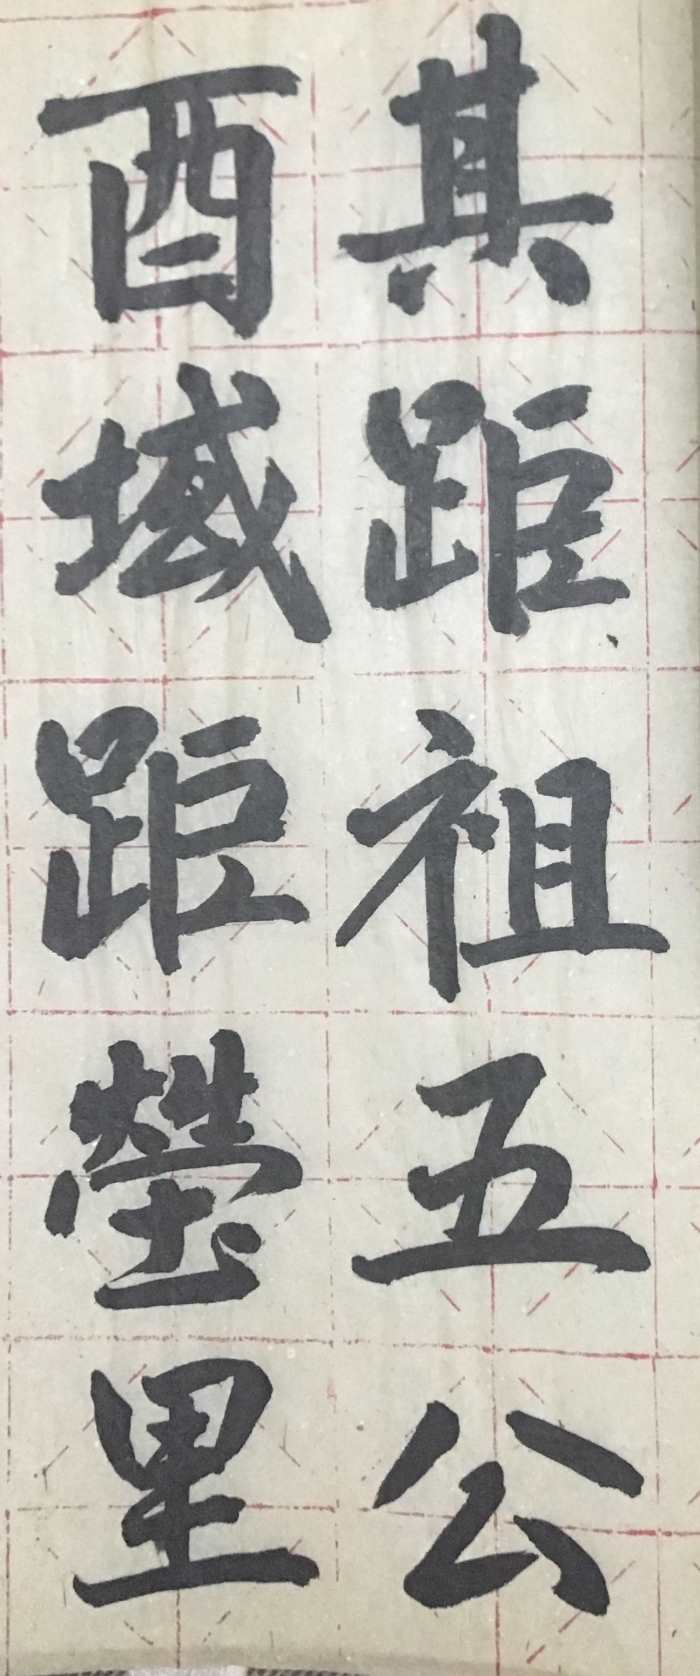 其距祖五公
酉域距塋里